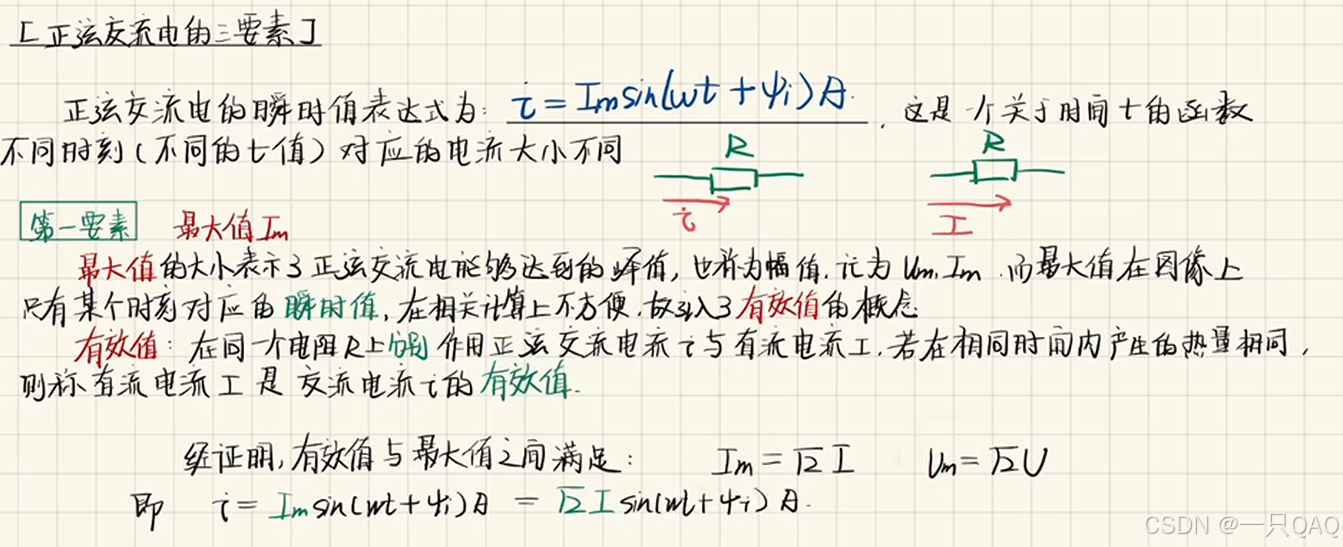 [正弦交流电的三要素]
正弦交流电的瞬时值表达式为: i=Imsin(ωt+ψi)A. ,这是一个关于时间t的函数
不同时刻(不同的t值)对应的电流大小不同
R
R
i
I
第一要素 最大值Im
最大值的大小表示了正弦交流电能够达到的峰值,也称为幅值,记为Um,Im.而最大值在图像上
只有某个时刻对应的瞬时值,在相关计算上不方便.故引入了有效值的概念
有效值:在同一个电阻R上分别作用正弦交流电流i与直流电流I.若在相同时间内产生的热量相同,
则称直流电流I是交流电流i的有效值.
经证明,有效值与最大值之间满足: Im=√2I Um=√2U
即 i=Imsin(ωt+ψi)A=√2Isin(ωt+ψi)A.
CSDN @一只QAQ